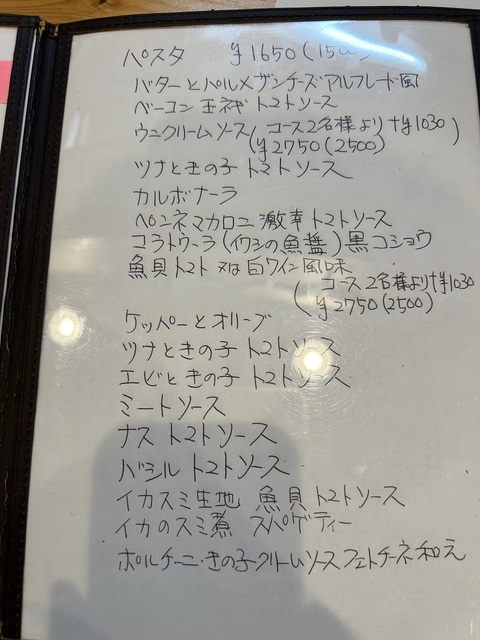 パスタ ¥1650(1500)
バターとパルメザンチーズアルフレード風
ベーコン玉ネギ トマトソース
ウニクリームソース(コース2名様より+¥1030)
(¥2750(2500)
ツナときの子 トマトソース
カルボナーラ
ペンネマカロニ 激辛トマトソース
コラトゥーラ(イワシの魚醤)黒コショウ
魚貝トマト 又は 白ワイン風味
(コース2名様より+¥1030
¥2750(2500)
ケッパーとオリーブ
ツナときの子 トマトソース
エビときの子 トマトソース
ミートソース
ナス トマトソース
バシル トマトソース
イカスミ生地 魚貝トマトソース
イカのスミ煮 スパゲティー
ポルチーニ・きの子クリームソースフェトチーネ和え